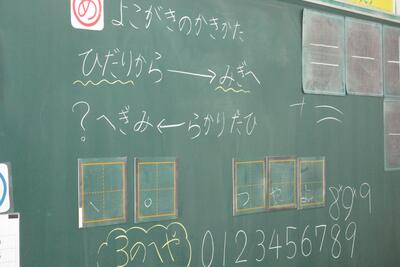 め よこがきのかきかた
ひだりから→みぎへ
?へぎみ←らかりだひ
+ =
、 。 っ ゃ ょ 9 9 9
3のへや 0123456789